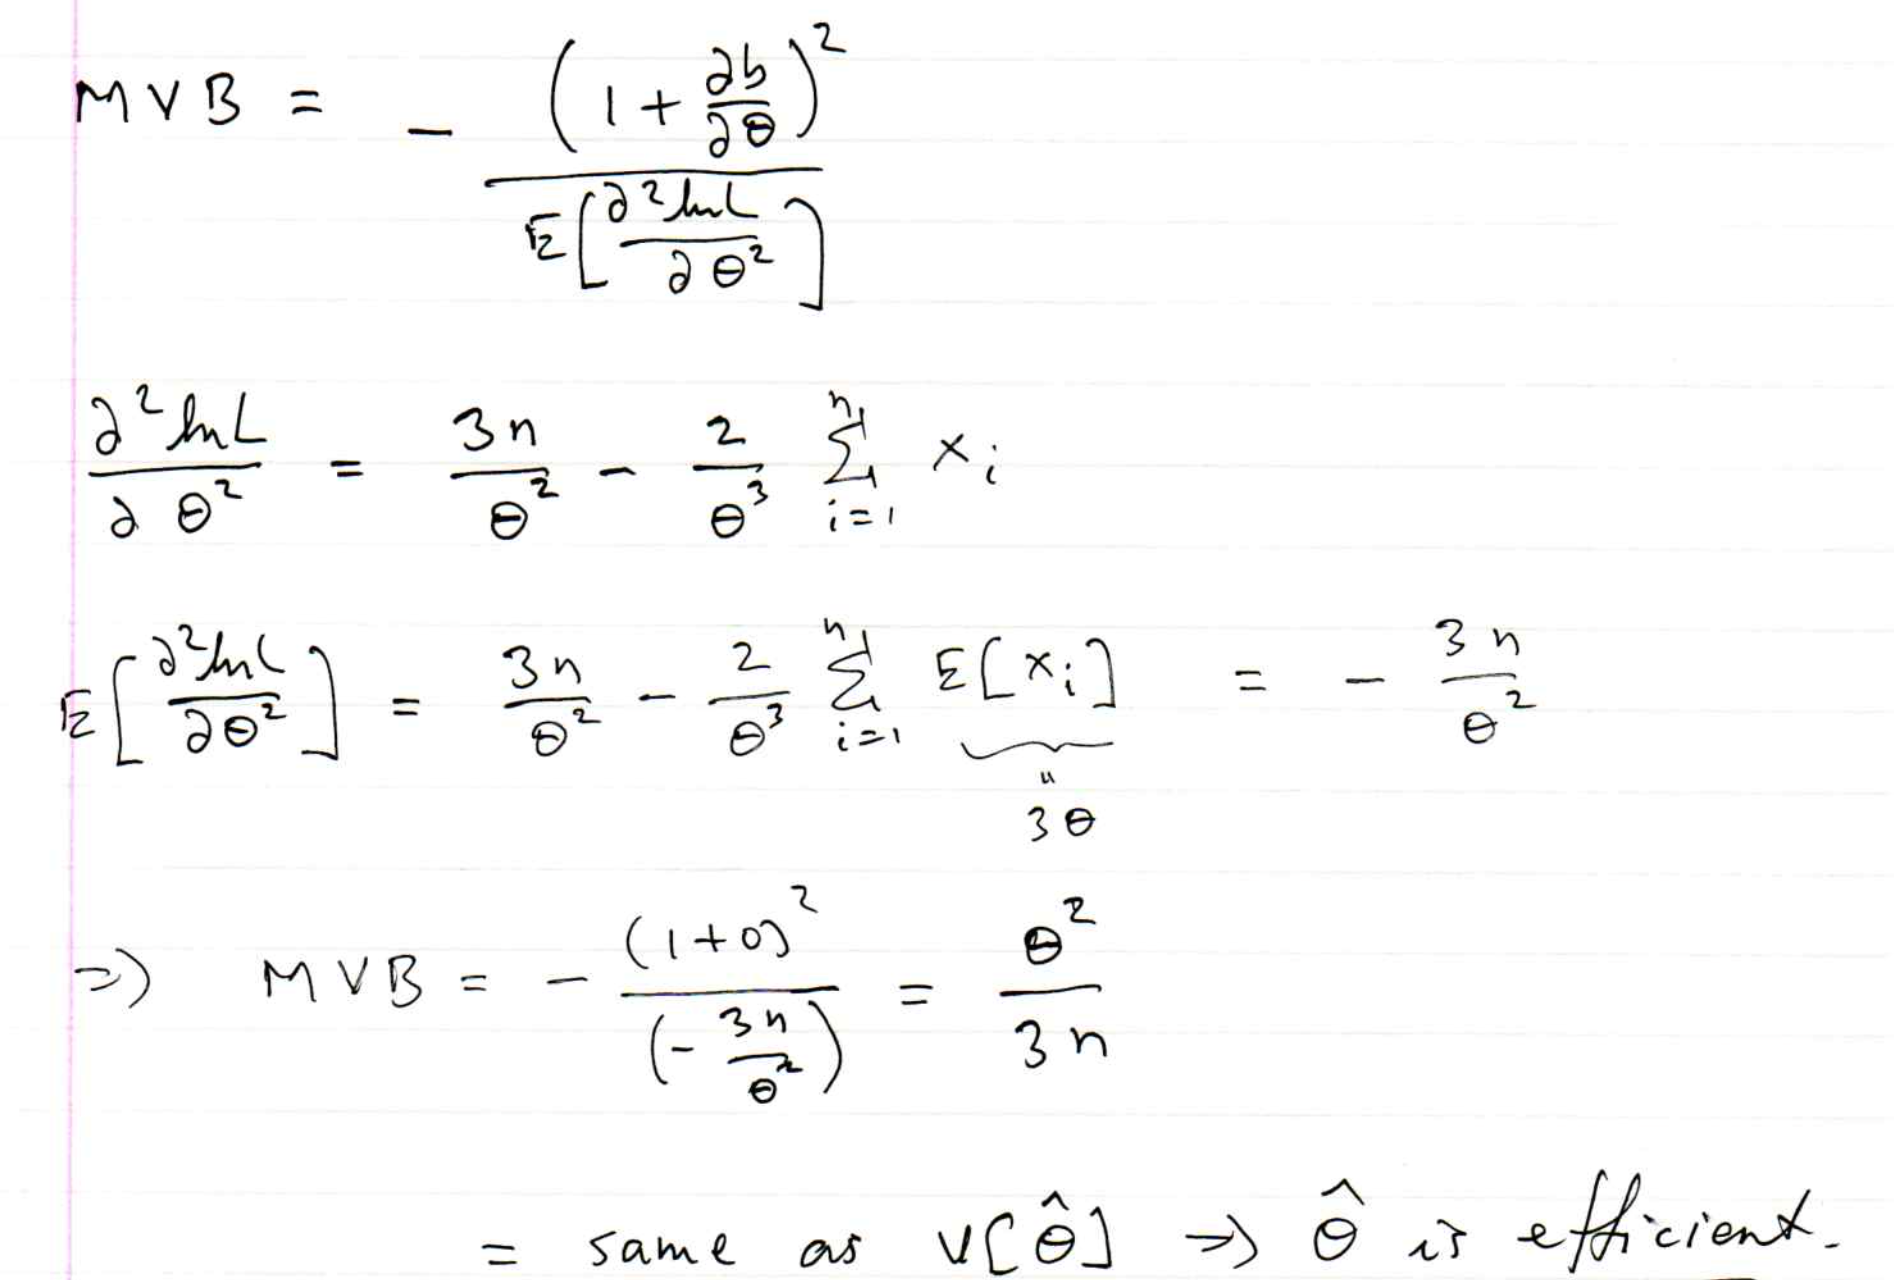 MVB = - (1 + ∂b/∂θ)² / E[∂² ln L / ∂θ²]
∂² ln L / ∂θ² = 3n/θ² - 2/θ³ ∑_{i=1}^{n} x_i
E[∂² ln L / ∂θ²] = 3n/θ² - 2/θ³ ∑_{i=1}^{n} E[x_i] = - 3n/θ²
" 3θ
=> MVB = - (1+0)² / (- 3n/θ²) = θ² / 3n
= same as V[θ̂] => θ̂ is efficient.